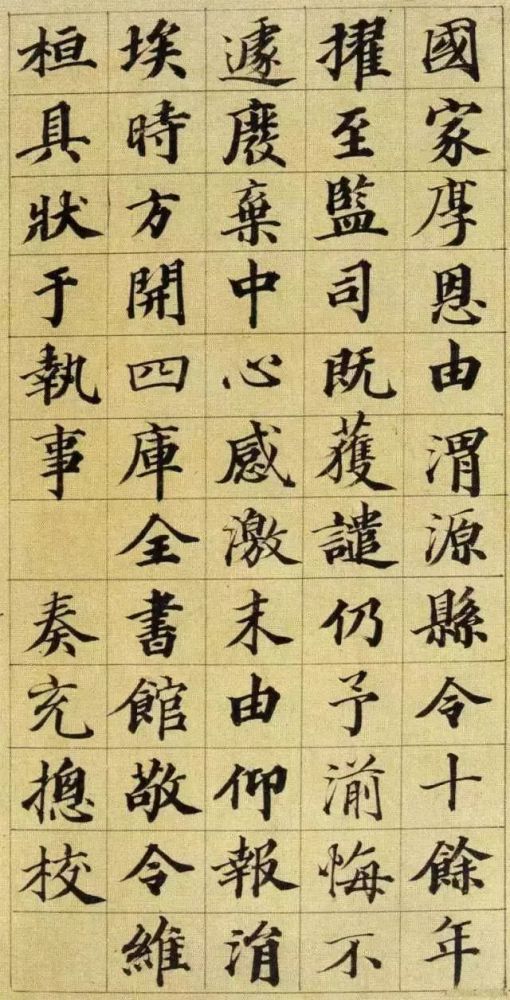 國家厚恩由渭源縣令十餘年
擢至監司既獲譴仍予湔悔不
遽廢棄中心感激末由仰報涓
埃時方開四庫全書館敬令維
桓具狀于執事　奏充摠校